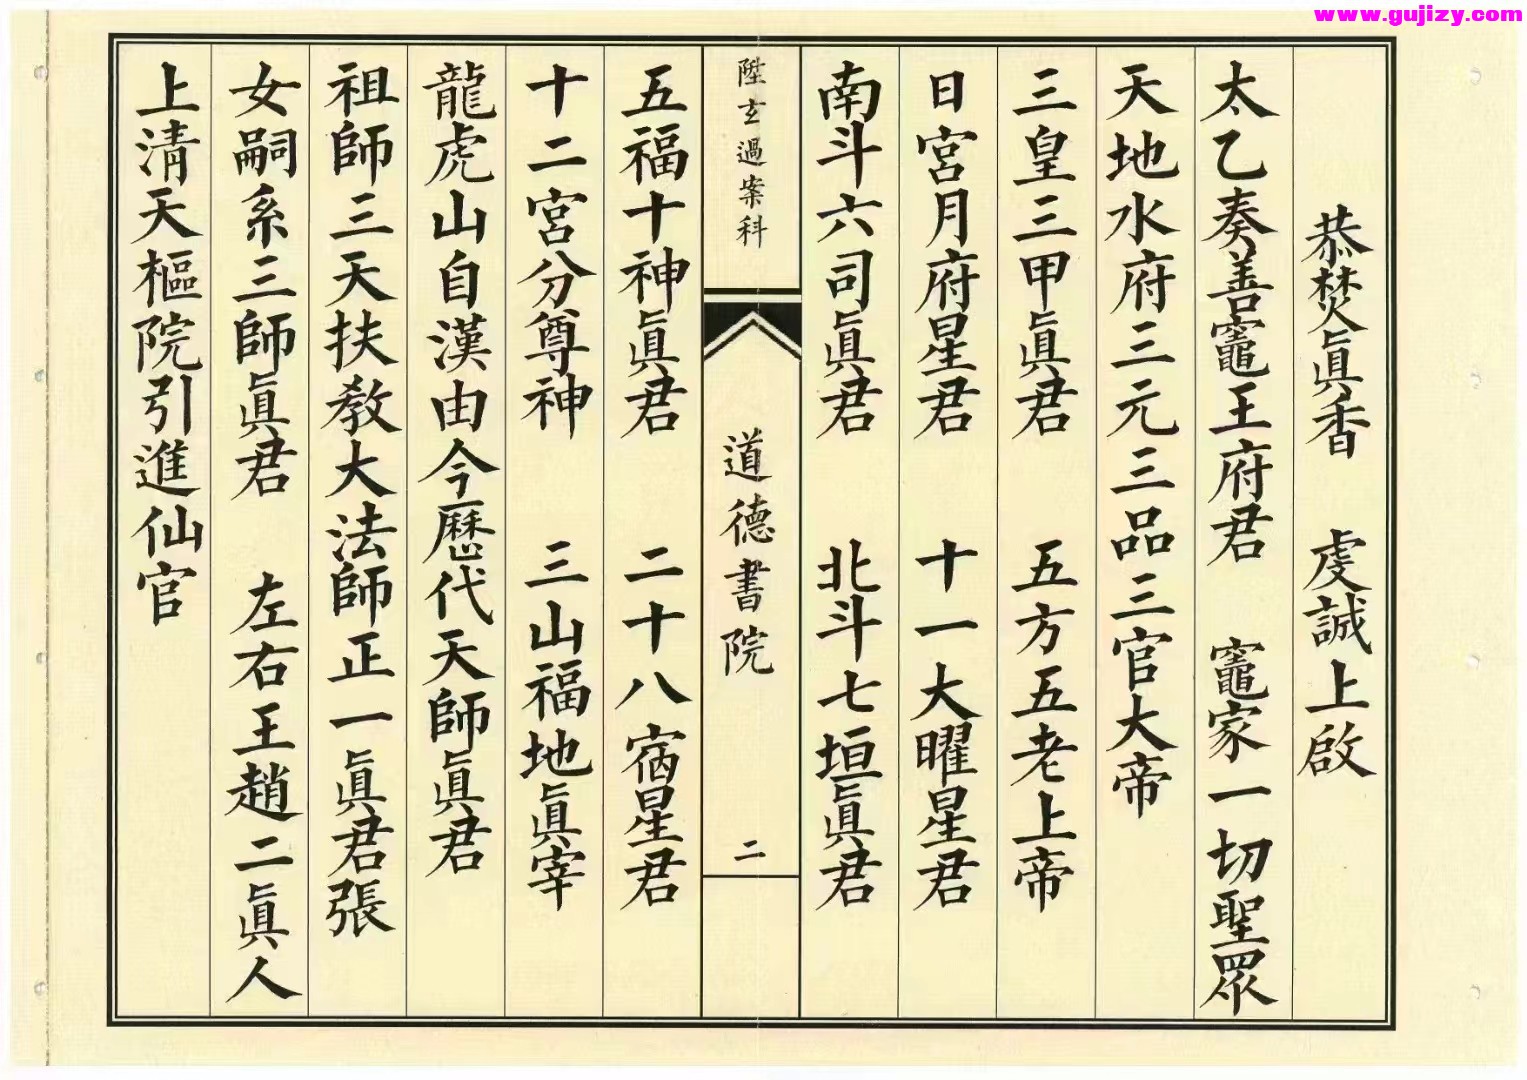 www.gujizy.com
恭焚眞香　虔誠上啟
太乙奏善竈王府君　竈家一切聖眾
天地水府三元三品三官大帝
三皇三甲眞君　五方五老上帝
日宮月府星君　十一大曜星君
南斗六司眞君　北斗七垣眞君
陞玄過案科
道德書院
二
五福十神眞君　二十八宿星君
十二宮分尊神　三山福地眞宰
龍虎山自漢由今歷代天師眞君
祖師三天扶教大法師正一眞君張
女嗣系三師眞君　左右王趙二眞人
上清天樞院引進仙官